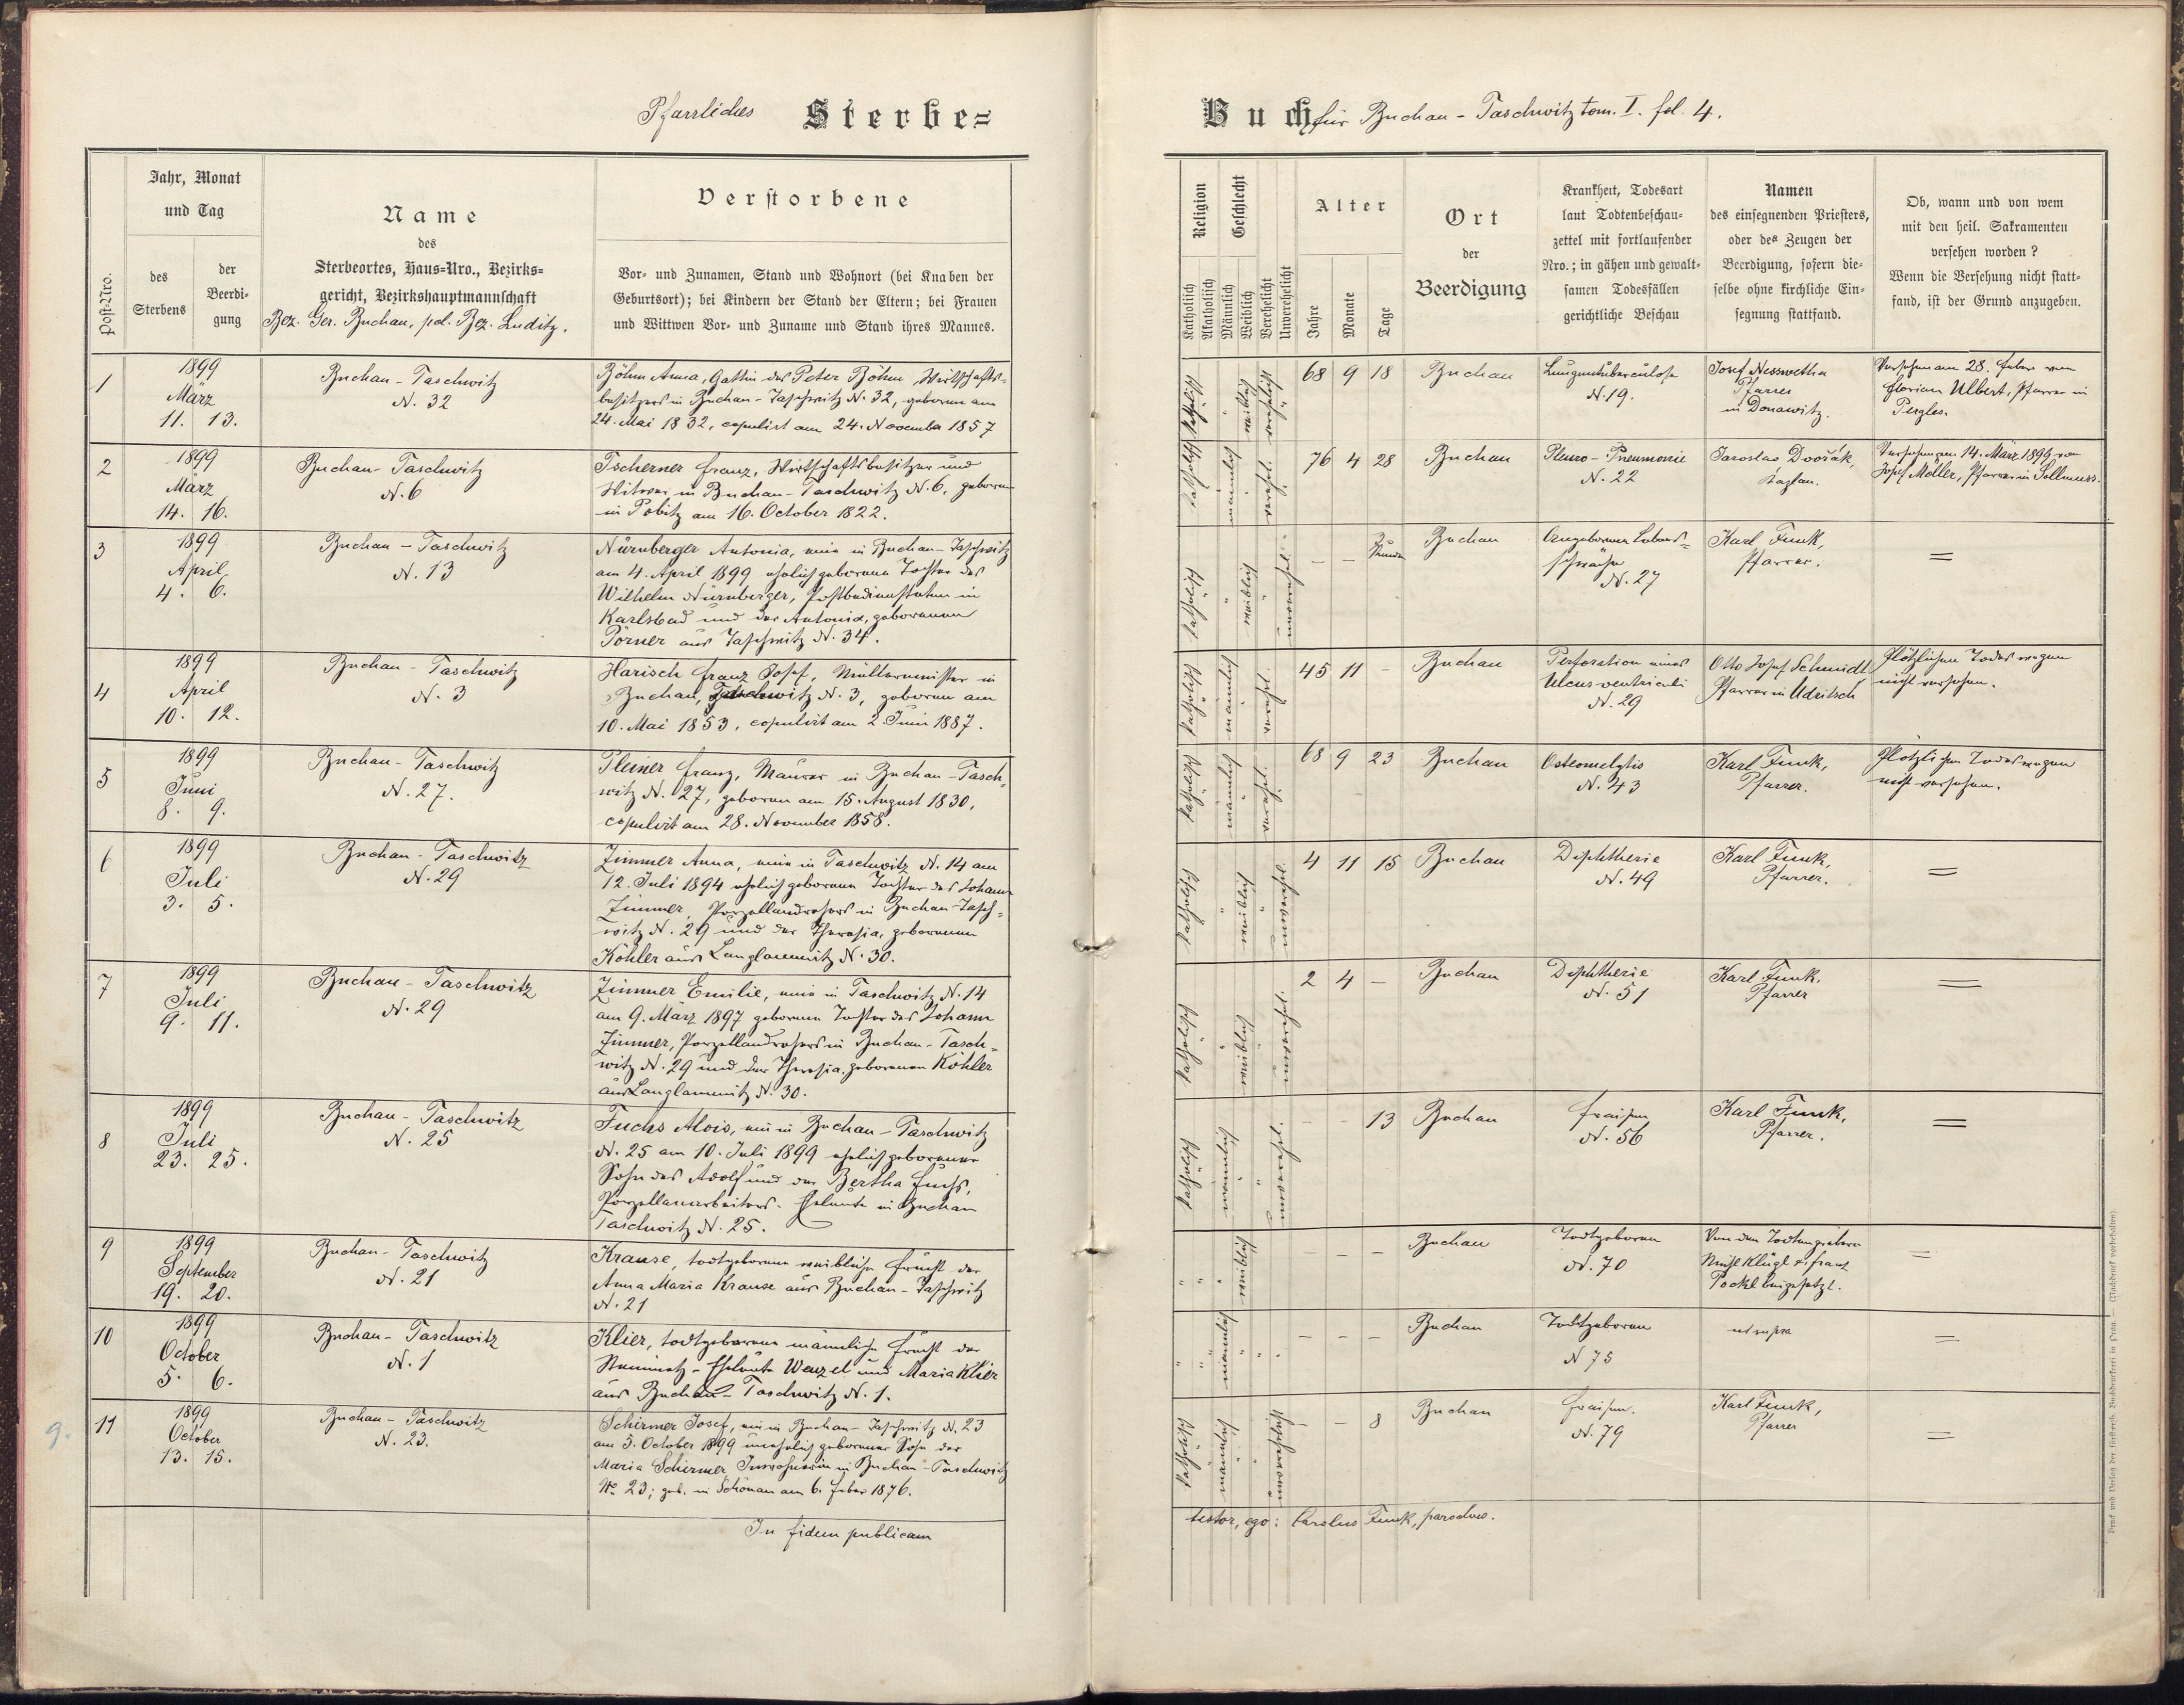 Pfarrliches Sterbe=
Jahr, Monat
und Tag
Post=Nro.
des
Sterbens
der
Beerdi=
gung
Name
des
Sterbeortes, Haus=Nro., Bezirks=
gericht, Bezirkshauptmannschaft
Bez. Ger. Buchau, pol. Bez. Luditz.
Verstorbene
Vor= und Zunamen, Stand und Wohnort (bei Knaben der
Geburtsort); bei Kindern der Stand der Eltern; bei Frauen
und Wittwen Vor= und Zuname und Stand ihres Mannes.
1
1899
März
11. 13.
Buchau - Taschwitz
N. 32
Böhm Anna, Gattin des Peter Böhm, Wirtschafts=
besitzers in Buchau - Taschwitz N. 32, geboren am
24. Mai 1832, copulirt am 24. November 1857
2
1899
März
14. 16.
Buchau - Taschwitz
N. 6
Tscherner Franz, Wirtschaftsbesitzer und
Witwer in Buchau - Taschwitz N. 6, geboren
in Pobitz am 16. October 1822.
3
1899
April
4. 6.
Buchau - Taschwitz
N. 13
Nürnberger Antonia, eine in Buchau - Taschwitz
am 4. April 1899 ehelich geborene Tochter des
Wilhelm Nürnberger, Postbediensteten in
Karlsbad und der Antonia, geborenen
Pörner aus Taschwitz N. 34.
4
1899
April
10. 12.
Buchau - Taschwitz
N. 3
Harisch Franz Josef, Müllermeister in
Buchau, Taschwitz N. 3, geboren am
10. Mai 1853, copulirt am 2. Juni 1887.
5
1899
Juni
8. 9.
Buchau - Taschwitz
N. 27.
Pleiner Franz, Maurer in Buchau - Tasch=
witz N. 27, geboren am 15. August 1830,
copulirt am 28. November 1858.
6
1899
Juli
3. 5.
Buchau - Taschwitz
N. 29
Zimmer Anna, eine in Taschwitz N. 14 am
12. Juli 1894 ehelich geborene Tochter des Johann
Zimmer, Porzellandrehers in Buchau - Tasch=
witz N. 29 und der Theresia, geborenen
Köhler aus Langlammitz N. 30.
7
1899
Juli
9. 11.
Buchau - Taschwitz
N. 29
Zimmer Emilie, eine in Taschwitz N. 14
am 9. März 1897 geborene Tochter des Johann
Zimmer, Porzellandrehers in Buchau - Tasch=
witz N. 29 und der Theresia, geborenen Köhler
aus Langlammitz N. 30.
8
1899
Juli
23. 25.
Buchau - Taschwitz
N. 25
Fuchs Alois, ein in Buchau - Taschwitz
N. 25 am 10. Juli 1899 ehelich geborener
Sohn des Adolf und der Bertha Fuchs,
Porzellanarbeiters - Eheleute in Buchau
Taschwitz N. 25.
9
1899
September
19. 20.
Buchau - Taschwitz
N. 21
Krause, todtgeborene weibliche Frucht der
Anna Maria Krause aus Buchau - Taschwitz
N. 21
10
1899
October
5. 6.
Buchau - Taschwitz
N. 1
Klier, todtgeborene männliche Frucht der
Steinmetz - Eheleute Wenzel und Maria Klier
aus Buchau - Taschwitz N. 1.
9.
11
1899
October
13. 15.
Buchau - Taschwitz
N. 23.
Schirmer Josef, ein in Buchau - Taschwitz N. 23
am 5. October 1899 unehelich geborener Sohn der
Maria Schirmer Inwohnerin in Buchau - Taschwitz
No 23; geb. in Schönau am 6. Feber 1876.
In fidem publicam
Buch für Buchau - Taschwitz tom. I. fol. 4.
Religion
Geschlecht
Katholisch
Akatholisch
Männlich
Weiblich
Verehelicht
Unverehelicht
Alter
Jahre
Monate
Tage
Ort
der
Beerdigung
Krankheit, Todesart
laut Todtenbeschau=
zettel mit fortlaufender
Nro.; in gähen und gewalt=
samen Todesfällen
gerichtliche Beschau
Namen
des einsegnenden Priesters,
oder des Zeugen der
Beerdigung, sofern die=
selbe ohne kirchliche Ein=
segnung stattfand.
Ob, wann und von wem
mit den heil. Sakramenten
versehen worden?
Wenn die Versehung nicht statt=
fand, ist der Grund anzugeben.
katholisch " weiblich " verehelicht
68 9 18
Buchau
Lungentuberculose
N. 19.
Josef Nesswetha
Pfarrer
in Donawitz.
Versehen am 28. Feber von
Florian Ulbert, Pfarrer in
Pergles.
katholisch männlich " verehel.
76 4 28
Buchau
Pleuro - Pneumonie
N. 22
Jaroslav Dvořák,
Kaplan.
Versehen am 14. März 1899 von
Josef Möller, Pfarrer in Sollmus.
katholisch " weiblich " unverehel.
– – Stunden
Buchau
Angeborene Lebens=
schwäche
N. 27
Karl Funk,
Pfarrer.
=
katholisch männlich verehel.
45 11 –
Buchau
Perforation eines
Ulcus ventriculi
N. 29
Otto Josef Schmidt
Pfarrer in Udritsch
Plötzlichen Todes wegen
nicht versehen.
katholisch männlich " verehel.
68 9 23
Buchau
Osteomelytis
N. 43
Karl Funk,
Pfarrer.
Plötzlichen Todes wegen
nicht versehen.
katholisch " weiblich " unverehel.
4 11 15
Buchau
Diphtherie
N. 49
Karl Funk,
Pfarrer.
=
katholisch " weiblich " unverehel.
2 4 –
Buchau
Diphtherie
N. 51
Karl Funk,
Pfarrer
=
katholisch männlich " unverehel.
– – 13
Buchau
Fraisen
N. 56
Karl Funk,
Pfarrer.
=
" " " weiblich
– – –
Buchau
Todtgeboren
N. 70
Von den Todtengräbern
Klügl & Franz
Pockl beigesetzt.
=
" " männlich " "
– – –
Buchau
Todtgeboren
N 75
ut supra
=
katholisch männlich " unverehelicht
– – 8
Buchau
Fraisen.
N. 79
Karl Funk,
Pfarrer
=
testor, ego: Carolus Funk, parochus.
Druck und Verlag der fürsterzb. Buchdruckerei in Prag. (Nachdruck vorbehalten).